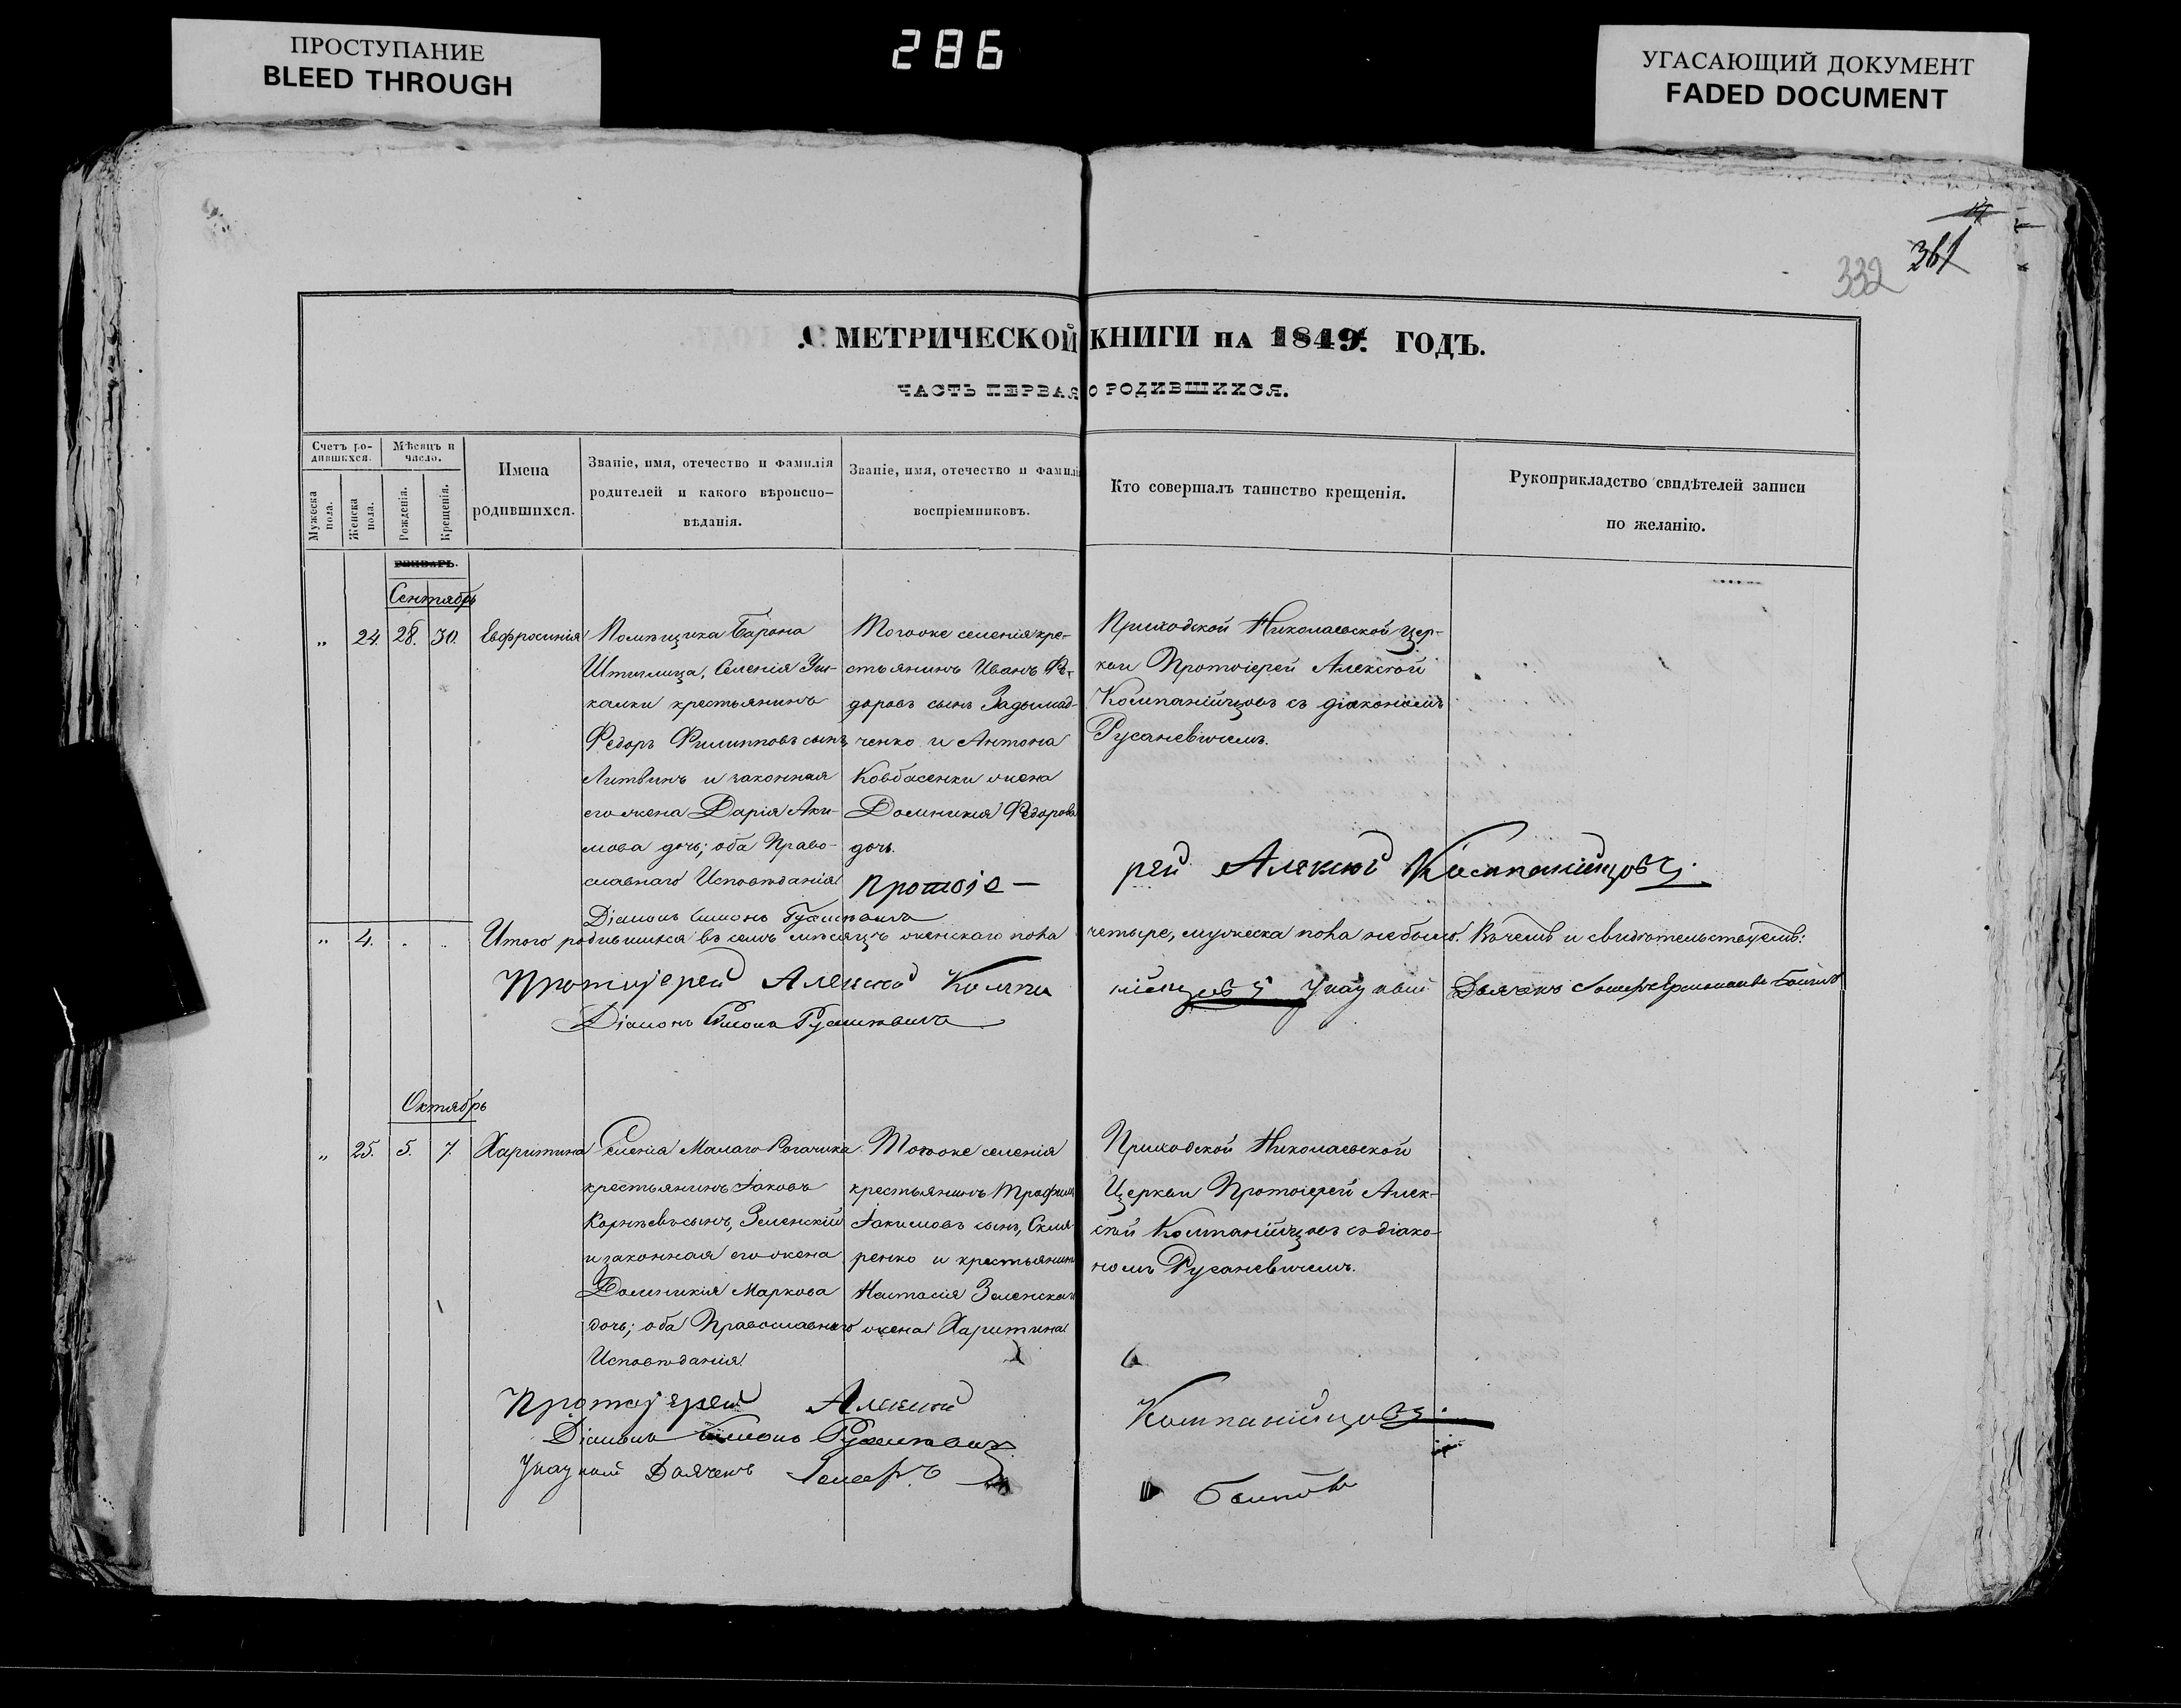 ПРОСТУПАНИЕ
BLEED THROUGH
286
УГАСАЮЩИЙ ДОКУМЕНТ
FADED DOCUMENT
332
361
МЕТРИЧЕСКОЙ КНИГИ НА 1849. ГОДЪ.
ЧАСТЬ ПЕРВАЯ О РОДИВШИХСЯ.
Счетъ ро-
дившихся.
Мужеска
пола.
Женска
пола.
Мѣсяцъ и
число.
Рожденія.
Крещенія.
Имена
родившихся.
Званіе, имя, отечество и фамилія
родителей и какого вѣроиспо-
вѣданія.
Званіе, имя, отечество и фамилі
воспріемниковъ.
Кто совершалъ таинство крещенія.
Рукоприкладство свидѣтелей записи
по желанію.
Сентябрь
„ 24. 28. 30. Евфросинія
Помѣщика Барона
Штиглица, Селенія
калки крестьянинъ
Федоръ Филипповъ сынъ,
Литвинъ и законная
его жена Дарія Аки-
мова дочь; оба Право-
славнаго Исповѣданія
Тогоже селенія кре-
стьянинъ Иванъ Фе-
доровъ сынъ
ченко и Антона
Ковбасенки жена
Домникия Федорова
дочь.
Приходской Николаевской Цер-
кви Протоіерей Алексѣй
Компанійцовъ съ діакономъ
Русаневичемъ.
Протоіе- рей Алексѣй Компанійцовъ
Діаконъ Симонъ Русаневичъ
„ 4. Итого родившихся въ семъ мѣсяцѣ женскаго пола четыре, мужеска пола небыло. Въ чемъ и свидѣтельствуемъ:
Протоіерей Алексѣй Компанійцовъ Указный Дьячекъ
Діаконъ Симонъ Русаневичъ
Октябрь
„ 25. 5. 7. Харитина
Селенія Малаго Рогачика
крестьянинъ Іаковъ
Корнѣевъ сынъ, Зеленскій
и законная его жена
Домникия Маркова
дочь; оба Православнаго
Исповѣданія
Тогоже селенія
крестьянинъ Трофим
Іакимовъ сынъ, Скля-
ренко и крестьянин
Зеленскаг
жена Харитина
Приходской Николаевской
Церкви Протоіерей Алек-
сѣй Компанійцовъ съ діако-
номъ Русаневичемъ.
Протоіерей Алексѣй Компанійцовъ
Діаконъ Симонъ Русаневичъ
Указный Дьячекъ